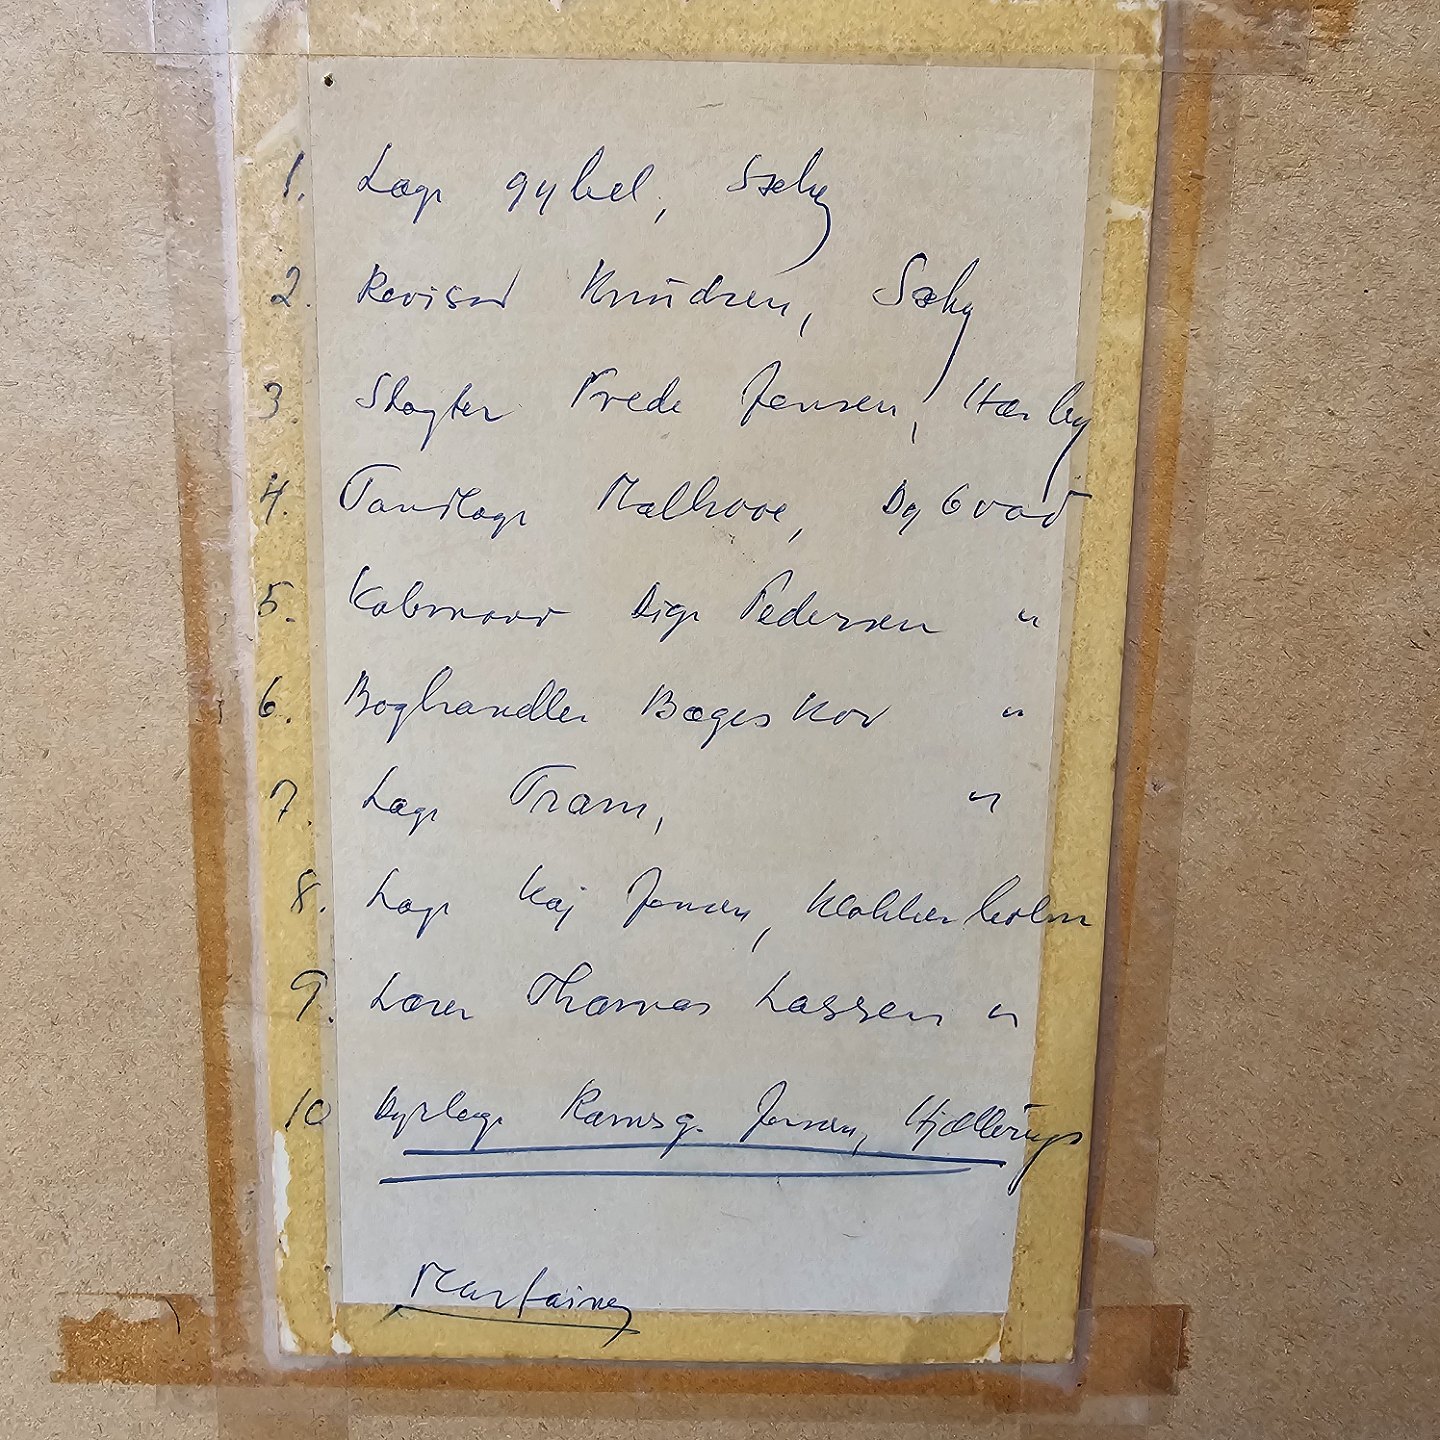 1. Læge Gybel, Sæby
2. Revisor Knudsen, Sæby
3. Slagter Frede Jensen, Hørby
4. Tandlæge Mølhove, Dybvad
5. Købmand Dige Pedersen "
6. Boghandler Bøgeskov "
7. Læge Tram, "
8. Læge Kaj Jensen, Klokkerholm
9. Lærer Thomas Lassen "
10 Dyrlæge Ramsg. Jensen, Hjallerup